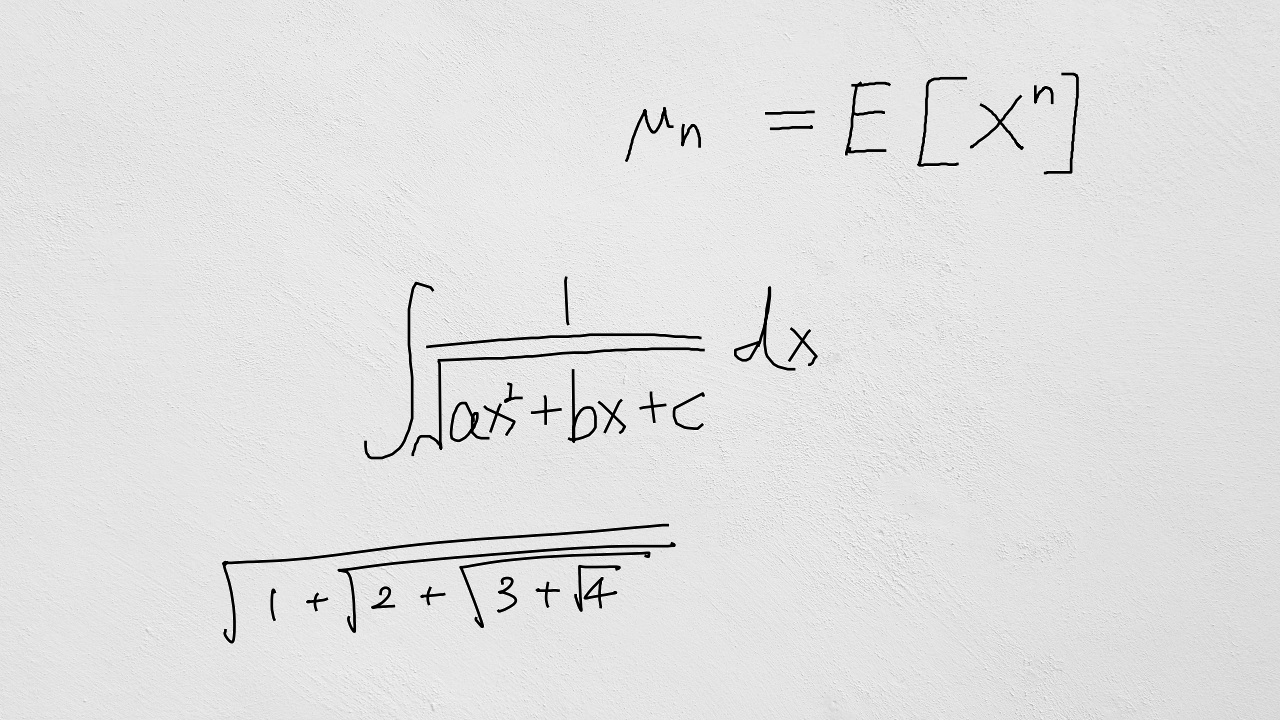 μₙ = E[Xⁿ]
∫ 1/√(ax²+bx+c) dx
√(1+√(2+√(3+√4)))